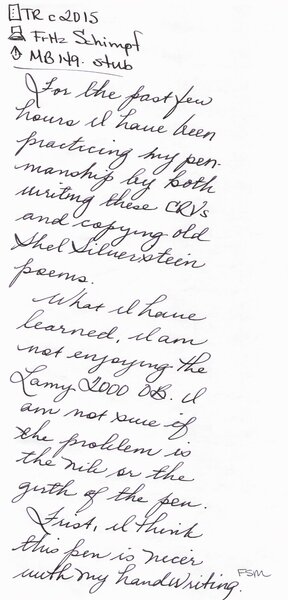 TR c 2015
Fritz Schimpf
MB 149. stub
For the past few
hours I have been
practicing my pen-
manship by both
writing these CRVs
and copying old
Shel Silverstein
poems.
What I have
learned, I am
not enjoying the
Lamy 2000 OB. I
am not sure if
the problem is
the nib or the
girth of the pen.
Just, I think
this pen is nicer
with my handwriting.
FSM